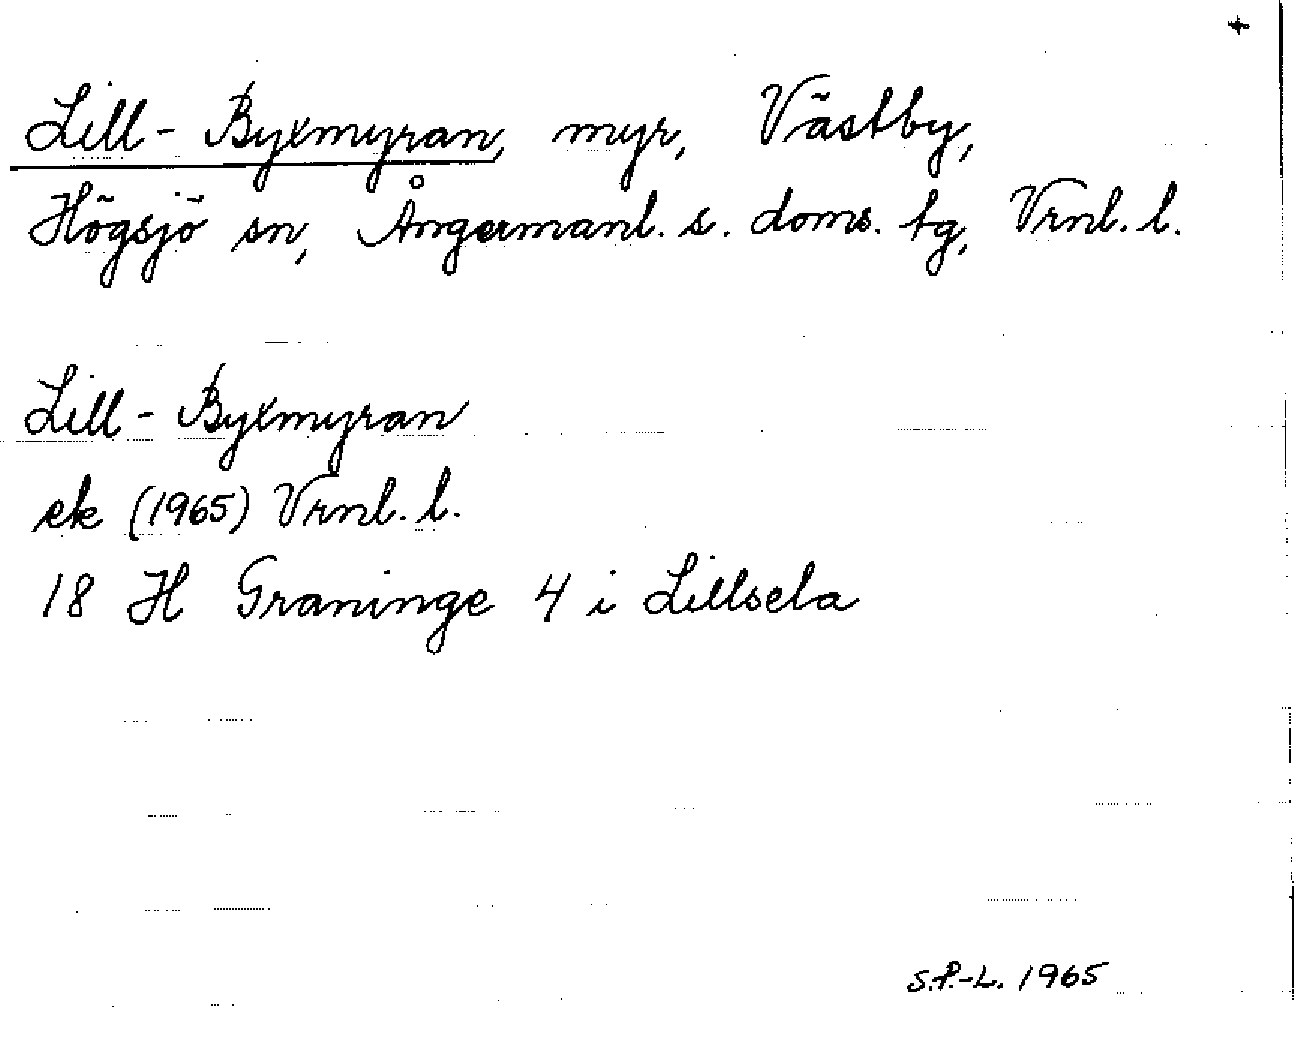 +
Lill-Byxmyran, myr, Västby,
Högsjö sn, Ångermanl. s. doms. tg, Vrnl. l.
Lill-Byxmyran
ek (1965) Vrnl. l.
18 H Graninge 4 i Lillsela
S.P.-L. 1965